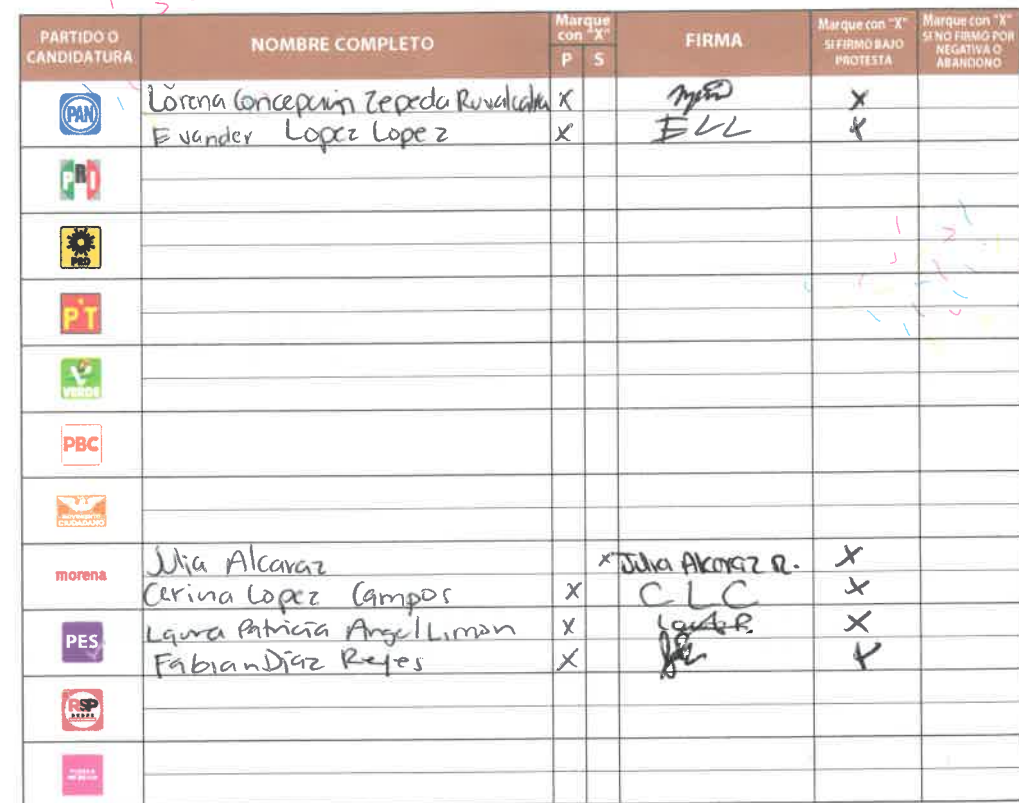 PARTIDO O CANDIDATURA
NOMBRE COMPLETO
Marque con "X"
P S
FIRMA
Marque con "X" SI FIRMÓ BAJO PROTESTA
Marque con "X" SI NO FIRMÓ POR NEGATIVA O ABANDONO
PAN
Lorena Concepción Zepeda Ruvalcaba X X
Evander Lopez Lopez X ELL X
PRI
PRD
PT
VERDE
PBC
CIUDADANO
morena
Julia Alcaraz X Julia Alcaraz R. X
Cerina Lopez Campos X CLC X
PES
Laura Patricia Angel Limon X X
Fabian Diaz Reyes X X
RSP